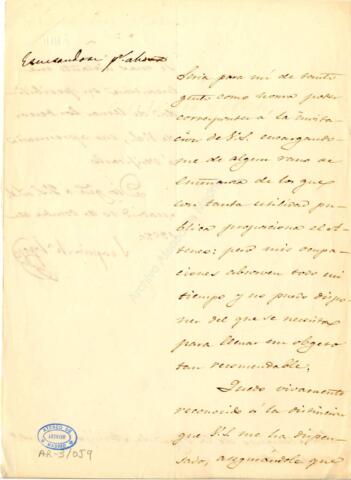 Escusandose pr. ahora
Seria para mi de tanto
gusto como honra poder
corresponder á la invita
cion de V.S. encargando
me de algun ramo de
enseñanza de los que
con tanta utilidad pu
blica proporciona el A
teneo; pero mis ocupa
ciones absorven todo mi
tiempo y no puedo dispo
ner del que se necesita
para llenar un obgeto
tan recomendable.
Quedo vivamente
reconocido á la distincion
que V.S. me ha dispen
sado, asegurandole que
ATENEO DE
MADRID
AR-3/059